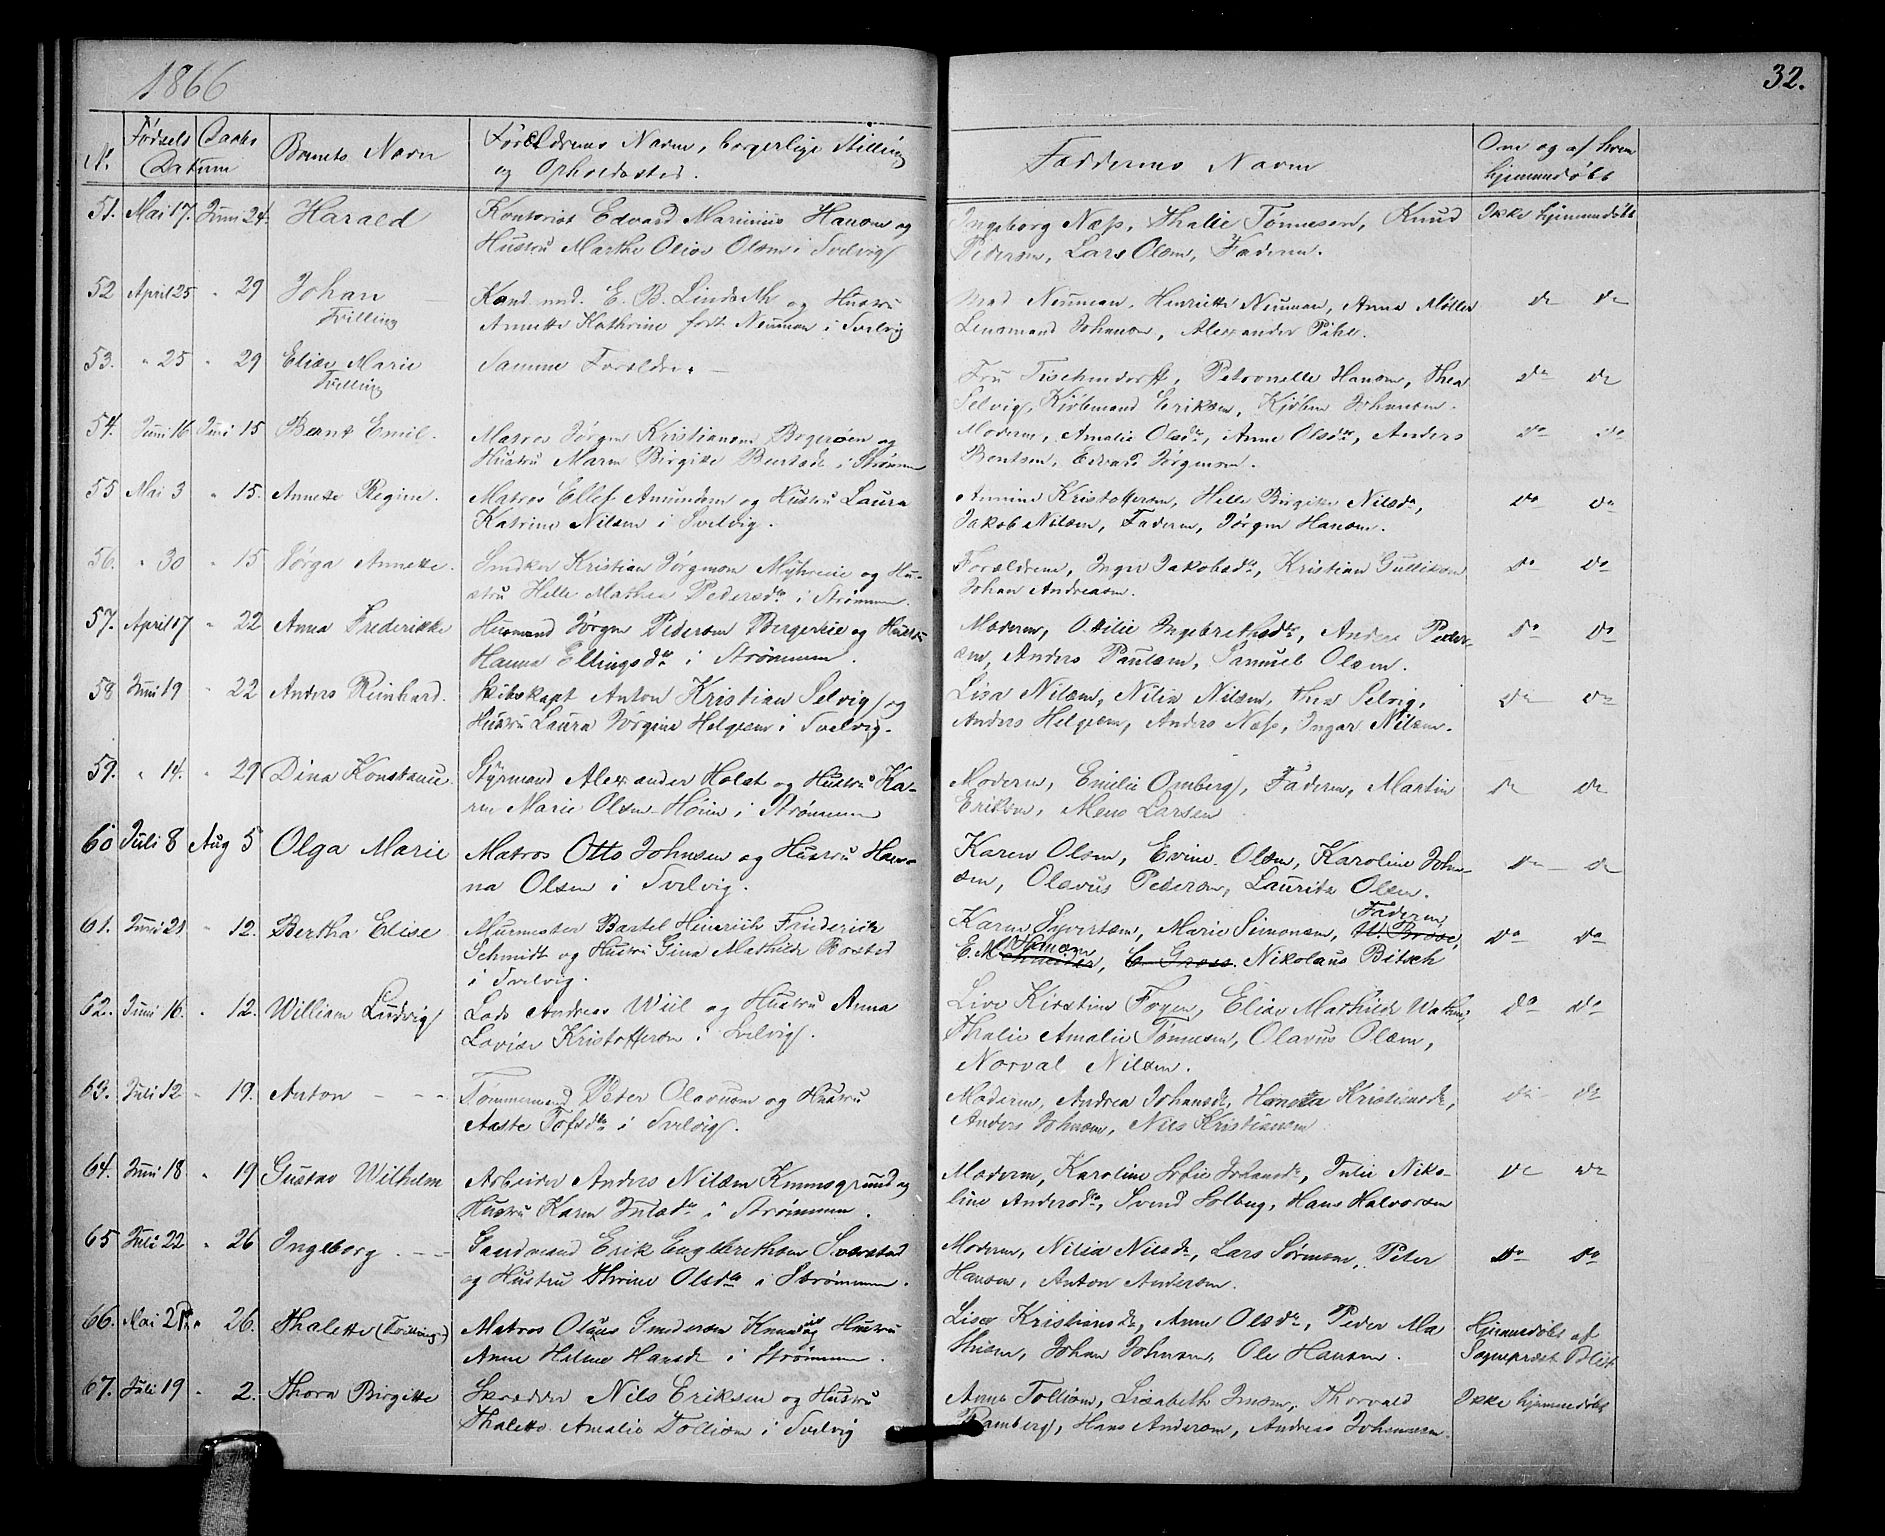 1866
32.
N. Fødsels Daabs Barnets Navn Forældrenes Navn, borgerlige Stilling Faddernes Navne Om og af hvem
Datum og Opholdssted. hjemmedøbt
51. Mai 17. Juni 24. Harald Kontorist Edvard Marinius Hansen og Ingeborg Næss, Thalie Tønnesen, Knud Ikke hjemmedøbt
Hustru Marthe Olise Olsen i Svelvig Pedersen, Lars Olsen, Faderen.
52 April 25 " 29 Johan Kand. med. E. B. Lindseth og Hustru Mad Neuman, Henriette Neuman, Anna Møller do do
Tvilling Annette Kathrine født Neuman i Svelvig Lensmand Johansen, Alexander Pihl.
53. " 25 " 29 Elise Marie Samme Forældre. Fru Tischendorff, Petronelle Hansen, Thea do do
Tvilling Selvig, Kjøbmand Eriksen, Kjøbm Johansen.
54. Juni 16 Juli 15 Bernt Emil. Matros Jørgen Kristiansen Bogerøen og Moderen, Amalie Olsdr, Anne Olsdr, Anders do do
Hustru Maren Birgitte Berntsdr i Strømmen Bentsen, Edvard Jørgensen.
55 Mai 3 " 15. Annette Regine. Matros Ellef Amundsen og Hustru Laura Annine Kristoffersen, Helle Birgitte Nilsdr, do do
Katrine Nilsen i Svelvig. Jakob Nilsen, Faderen, Jørgen Hansen.
56. " 30 " 15 Jørga Annette. Snedker Kristian Jørgensen Myhreie og Hu- Forældrene, Inger Jakobsdr, Kristian Gulliksen do do
stru Helle Mathea Pedersdr i Strømmen. Johan Andreasen.
57. April 17 " 22 Anna Fredrikke Husmand Jørgen Pedersen Bergereie og Hustru Moderen, Ottilie Ingebrethsdr, Andrea Peder- do do
Hanna Ellingsdr i Strømmen. sen, Anders Paulsen, Samuel Olsen.
58 Juni 19 " 22 Anders Reinhard. Skibskapt Anton Kristian Selvig og Lisa Nilsen, Nilia Nilsen, Thea Selvig, do do
Hustru Laura Jørgine Helgesen i Svelvig. Anders Helgesen, Anders Næss, Ingar Nilsen.
59. " 14. " 29 Dina Konstance Styrmand Alexander Holst og Hustru Ka- Moderen, Emilie Omberg, Faderen, Martin do do
ren Marie Olsen Høien i Strømmen Eriksen, Mons Larsen
60 Juli 8 Aug 5 Olga Marie Matros Otto Johnsen og Hustru Han- Karen Olsen, Evine Olsen, Karoline John- do do
na Olsen i Svelvig. sen, Olavus Pedersen, Lauritz Olsen.
61. Juni 21 " 12. Bertha Elise Murmester Bartel Heinrich Friderich Karen Syvertsen, Marie Simonsen, Faderen do do
Schmidt og Hustru Gina Mathilde Borsted E. M. Hansen, C. Gross. Nikolaus Bitsch
i Svelvig.
62. Juni 16. " 12. William Ludvig Lods Andreas Wiil og Hustru Anna Live Kirstine Fogen, Elise Mathilde do do
Lovise Kristoffersen i Svelvig. Thalie Amalie Tønnesen, Olavus Olsen,
Norval Nilsen.
63. Juli 12 " 19. Anton Tømmermand Peter Olavesen og Hustru Moderen, Andrea Johansdr, Hanetta Kristiansdr, do do
Aaste Tofsdr i Svelvig. Anders Johnsen, Nils Kristiansen
64. Juni 18 " 19 Gustav Wilhelm Arbeider Anders Nilsen Krumsgrund og Moderen, Karoline Sofie Johansdr, Julie Niko- do do
Hustru Karen Julsdr i Strømmen. line Andersdr, Svend Solberg, Hans Halvorsen
65 Juli 22 " 26 Ingeborg Gaardmand Erik Engebrethsen Sværstad Moderen, Nilia Nilsdr, Lars Sørensen, Peter do do
og Hustru Thrine Olsdr i Strømmen. Hansen, Anton Andersen.
66. Mai 21 " 26. Thalette (Tvilling) Matros Olaus Hustru Lise Kristiansdr, Anne Olsdr, Peder Ma Hjemmedøbt af
Anne Helene Hansdr i Strømmen. thisen, Johan Johnsen, Ole Hansen. Sogneprest Blix
67. Juli 19 " 2. Thora Birgitte Skrædder Nils Eriksen og Hustru Anna Tollisen, Lisabeth Jensen, Thorvald Ikke hjemmedøbt
Thalette Amalie Tollisen i Svelvig Ramberg, Hans Andersen, Andreas Johannesen.